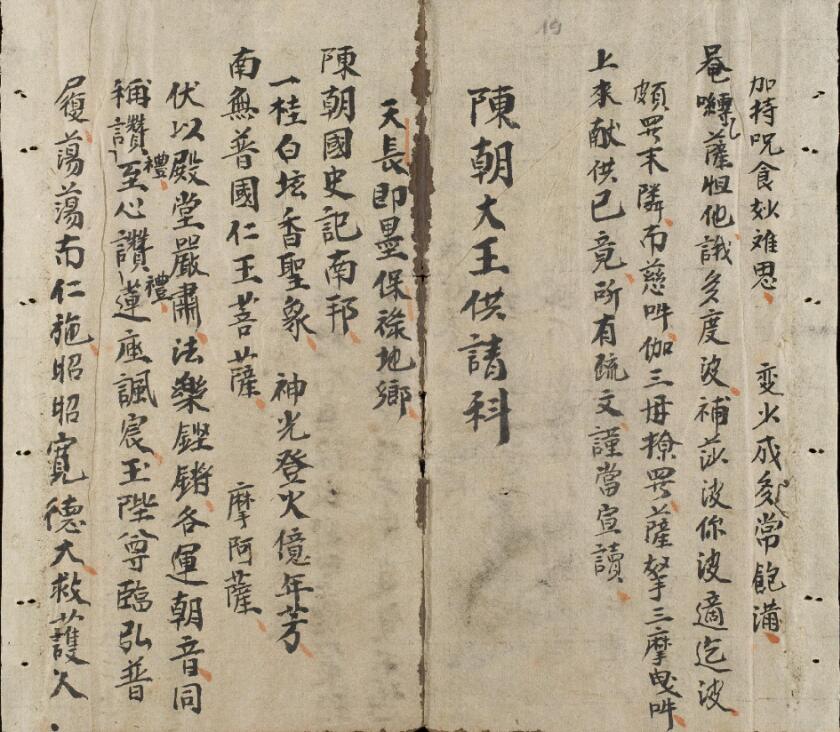 加持呪食妙难思 变少成多常飽满
薩怛他誐多度波補 波你波適迄波
頗罗末隣而慈吽伽三毋捺罗薩拏三摩曳吽
上来献供已竟所有疏文謹當宣讀
陳朝大王供請科
天長即墨保祿地鄉
陳朝國史記南邦
一桂白坛香聖象 神光登火億年芳
南無普國仁王菩薩 摩阿薩
伏以殿堂嚴肅法樂鏗鏘各運朝音同
稱讚禮至心讚禮蓮座諷宸玉陛尊臨弘普
履蕩蕩而仁施昭昭寬德大救護人
19